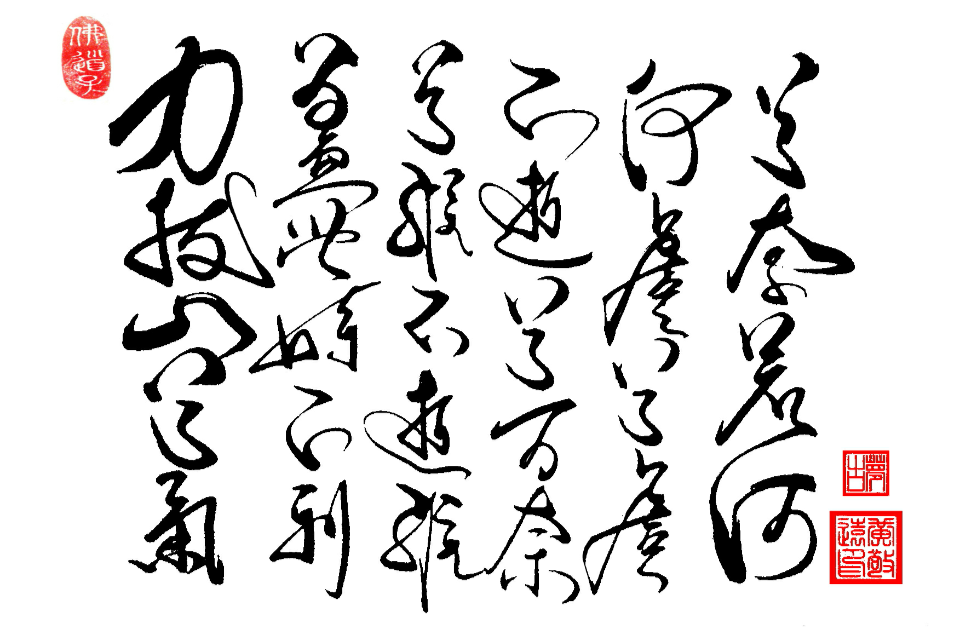 力拔山兮氣
蓋世時不利
兮騅不逝騅
不逝兮可奈
何虞兮虞
兮奈若何
佛道子
夢古